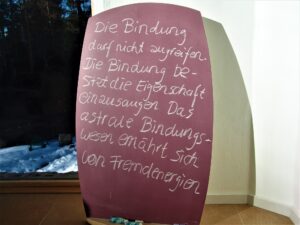 Die Bindung
darf nicht zugreifen.
Die Bindung be-
sitzt die Eigenschaft
einzusaugen Das
astrale Bindungs-
wesen ernährt sich
von Fremdenergien